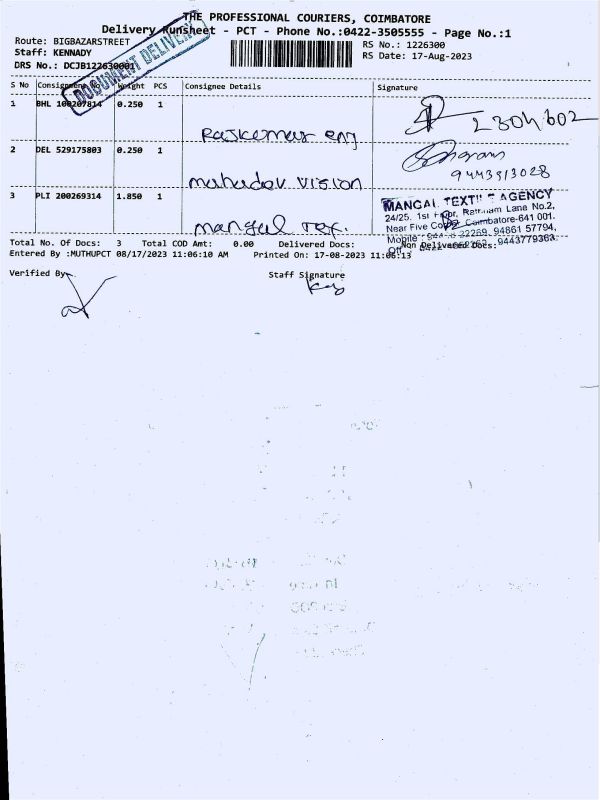 THE PROFESSIONAL COURIERS, COIMBATORE
Delivery Runsheet - PCT - Phone No.:0422-3505555 - Page No.:1
Route: BIGBAZARSTREET
RS No.: 1226300
Staff: KENNADY
RS Date: 17-Aug-2023
DRS No.: DCJB122630001
DOCUMENT DELIVERY
S No Consignment No Weight PCS Consignee Details Signature
1 BHL 100207814 0.250 1
Rajkumar eng 2304602
2 DEL 529175803 0.250 1
mahadev vision 9443313028
3 PLI 200269314 1.850 1
mangal Tex.
MANGAL TEXTILE AGENCY
24/25, 1st Floor, Ratnam Lane No.2,
Near Five Coimbatore-641 001.
Mobile 22269, 94861 57794,
9443779363
Total No. Of Docs: 3 Total COD Amt: 0.00 Delivered Docs: Non Delivered Docs:
Entered By :MUTHUPCT 08/17/2023 11:06:10 AM Printed On: 17-08-2023 11:06:13
Verified By Staff Signature